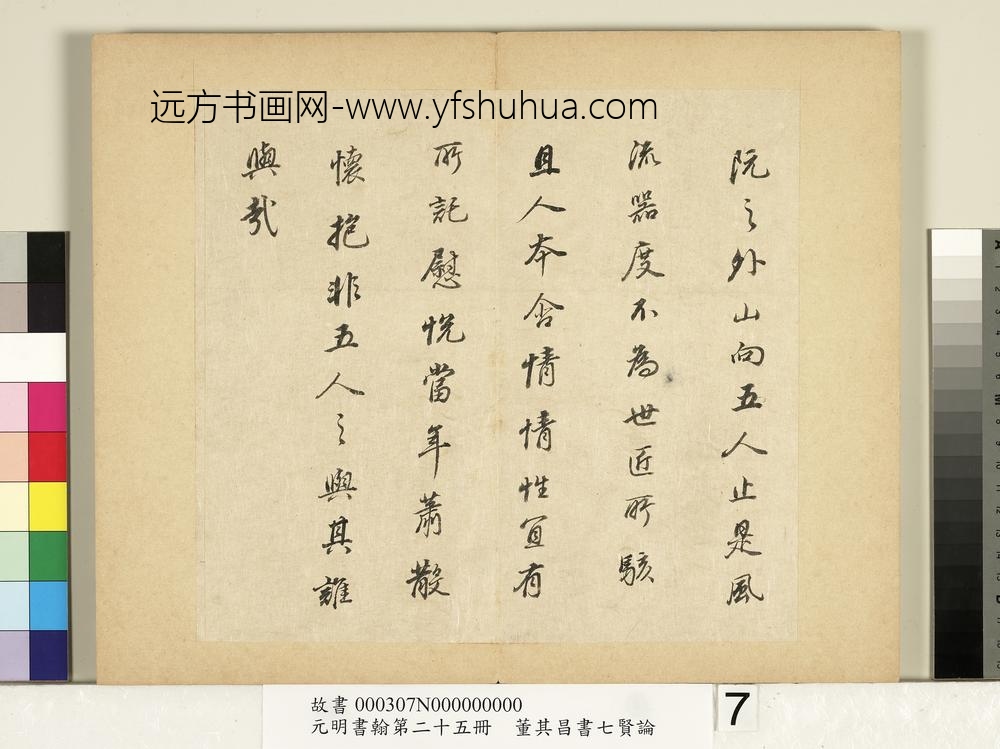 远方书画网-www.yfshuhua.com
阮之外山向五人止是風
流器度不為世匠所駭
且人本含情情性宜有
所託慰悅當年蕭散
懷抱非五人之與其誰
與哉
故書 000307N000000000
元明書翰第二十五冊 董其昌書七賢論
7